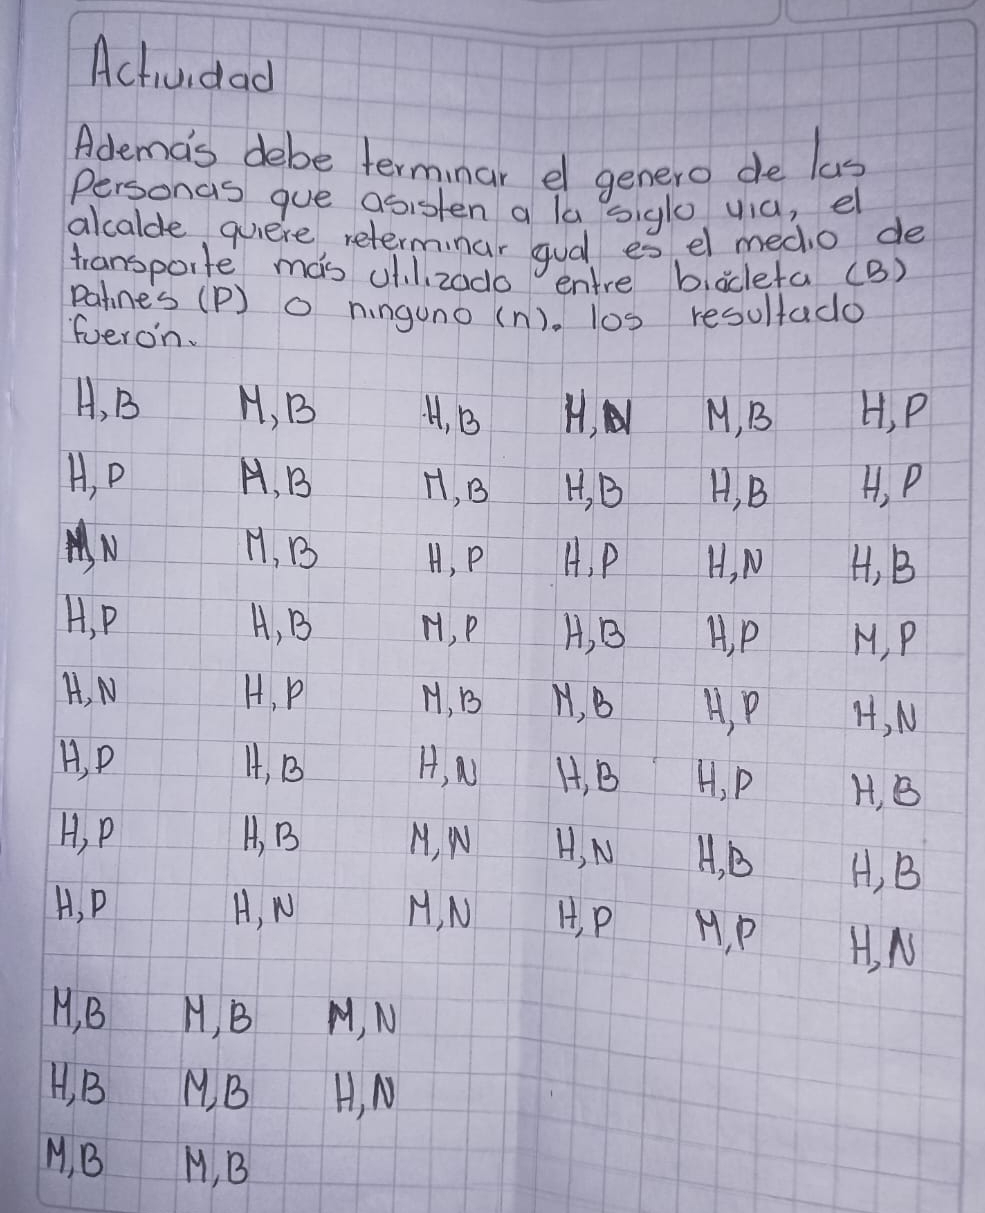 Actividad
Además debe terminar el genero de las
Personas que asisten a la siglo via, el
alcalde quiere reterminar gual es el medio de
transporte más utilizado entre bicicleta (B)
Patines (P) o ninguno (n). los resultado
fuerón.
H,B M,B H,B H,N M,B H,P
H,P M,B M,B H,B H,B H,P
M,N M,B H,P H,P H,N H,B
H,P H,B M,P H,B H,P M,P
H,N H,P M,B M,B H,P H,N
H,P H,B H,N H,B H,P H,B
H,P H,B M,N H,N H,B H,B
H,P H,N M,N H,P M,P H,N
M,B M,B M,N
H,B M,B H,N
M,B M,B